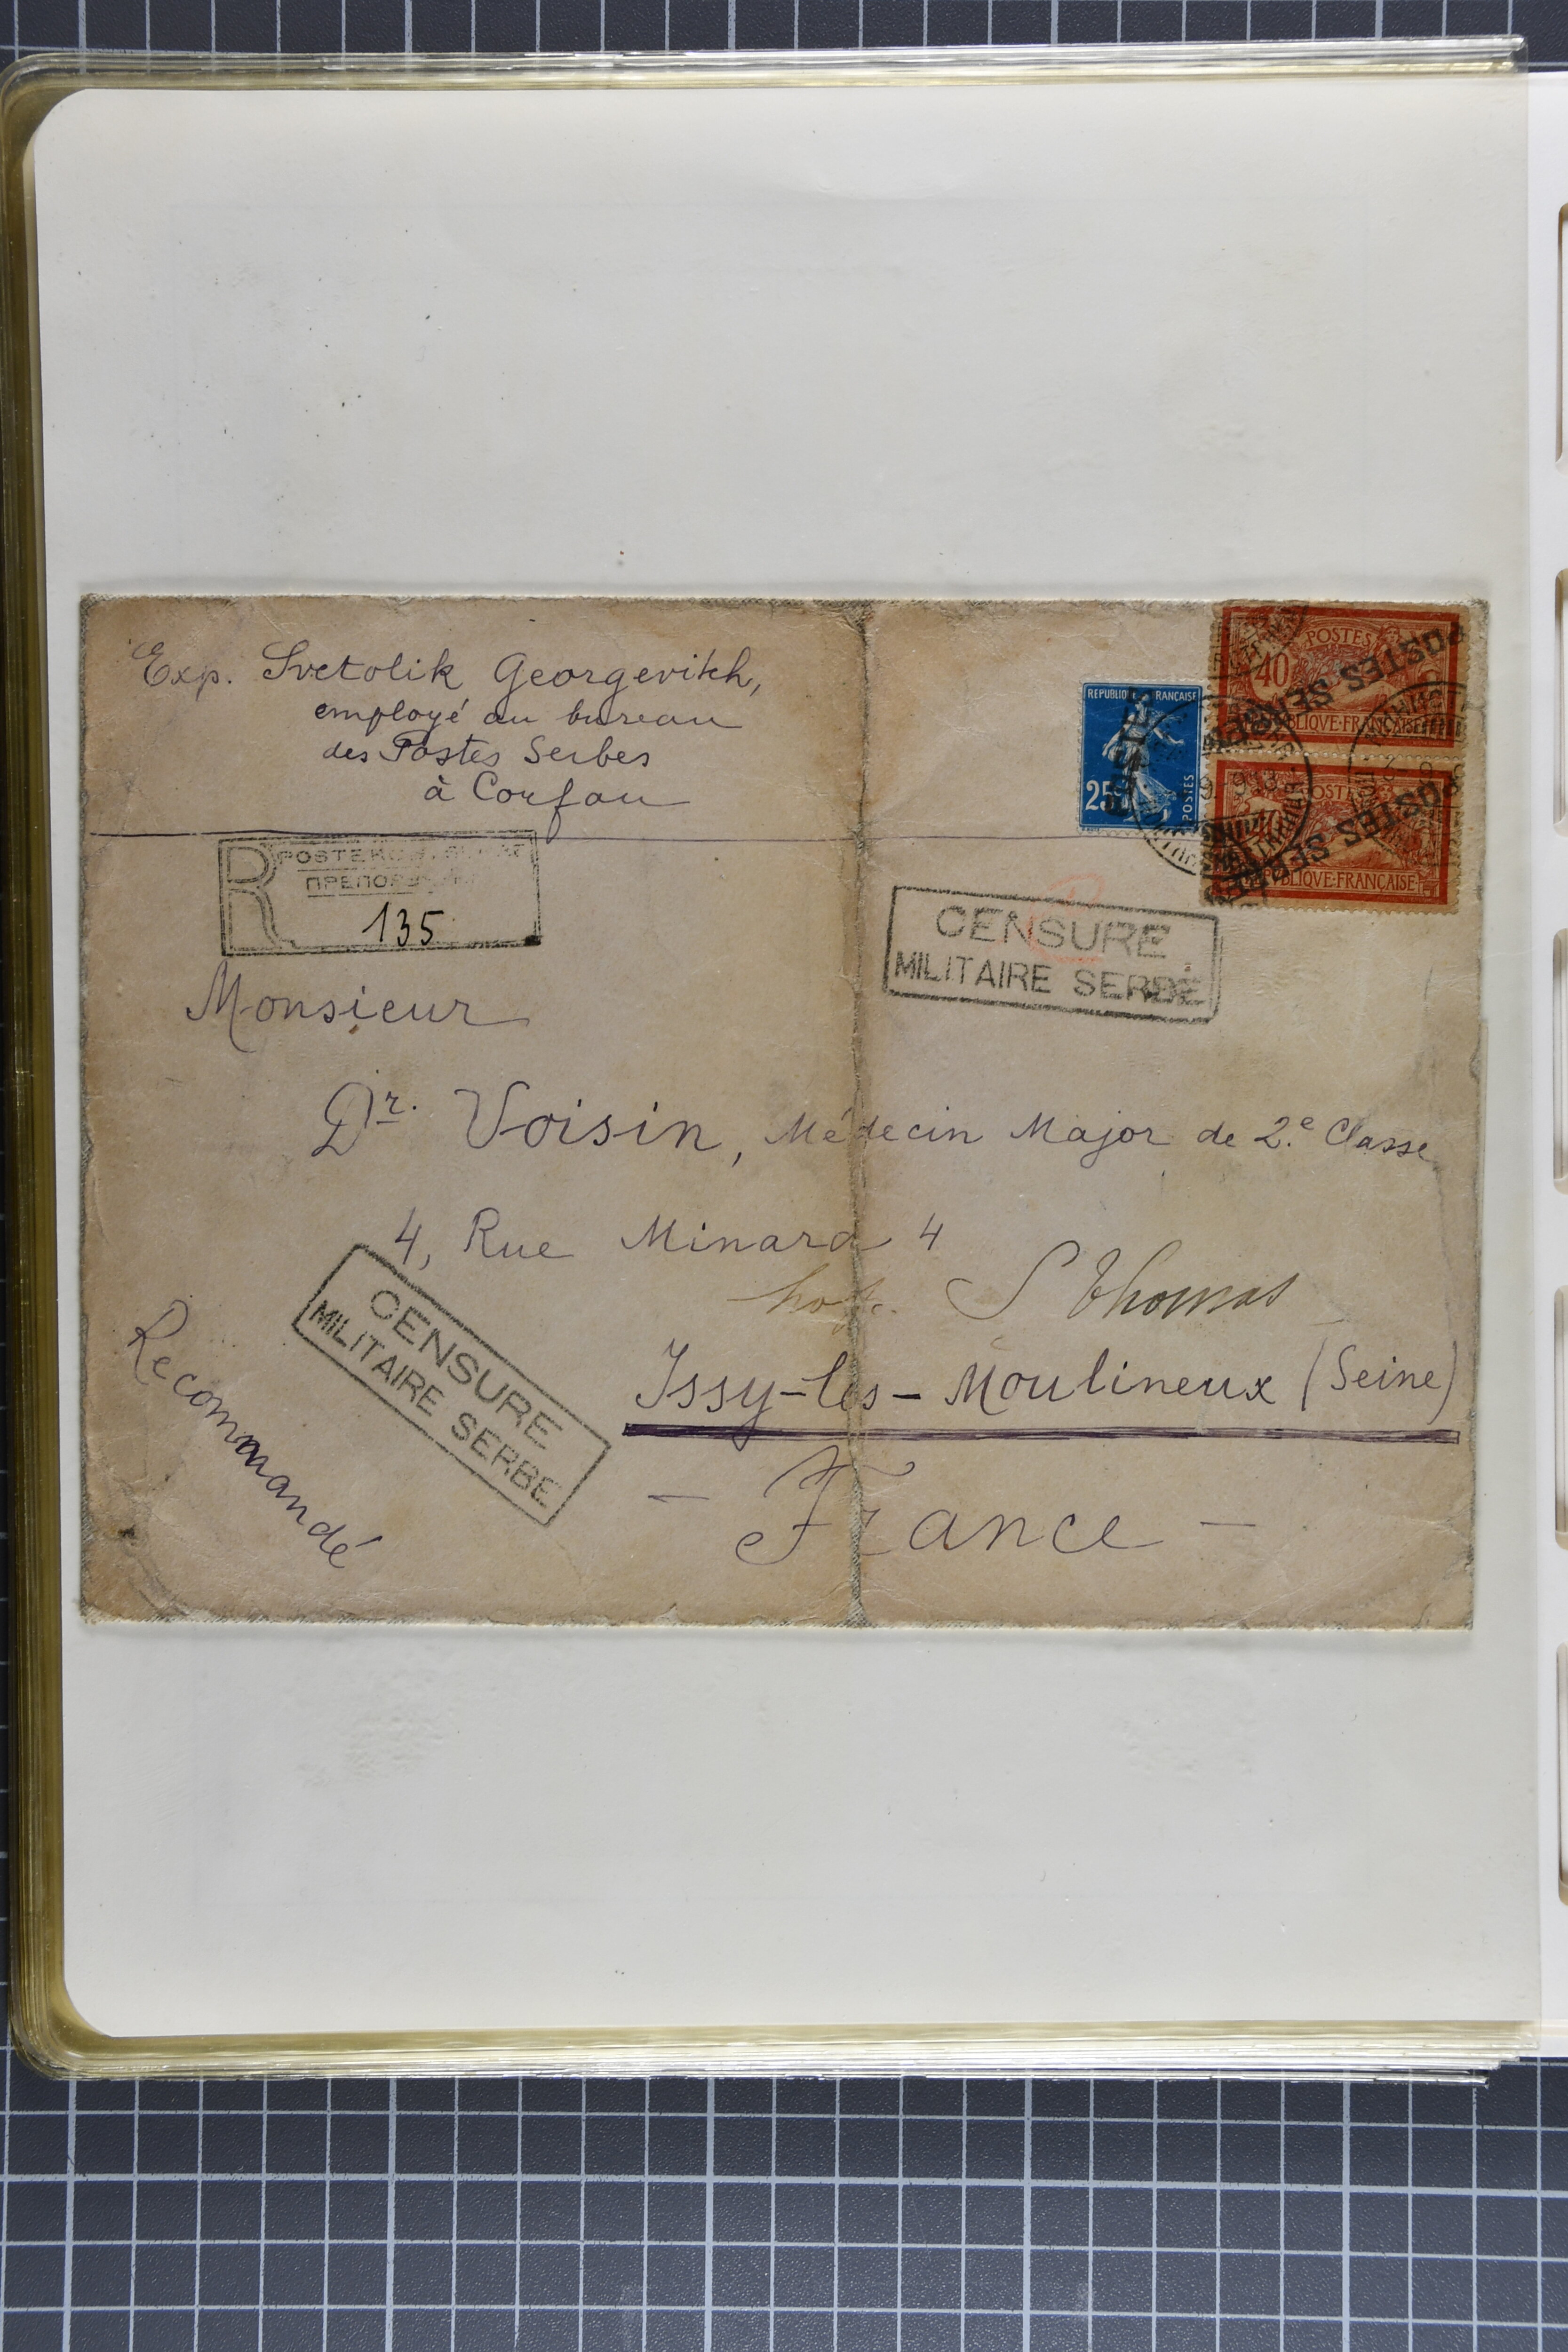 Exp. Svetolik Georgevitch,
employé au bureau
des Postes Serbes
à Corfou
R
135
REPUBLIQUE FRANCAISE
25
POSTES
POSTES
40
POSTES SERBES
REPUBLIQUE·FRANÇAISE
POSTES
POSTES SERBES
REPUBLIQUE·FRANÇAISE
CENSURE
MILITAIRE SERBE
Monsieur
Dr. Voisin, Médecin Major de 2.e Classe
4, Rue Minard 4
S Thomas
Issy-les-Moulineux (Seine)
- France -
Recommandé
CENSURE
MILITAIRE SERBE